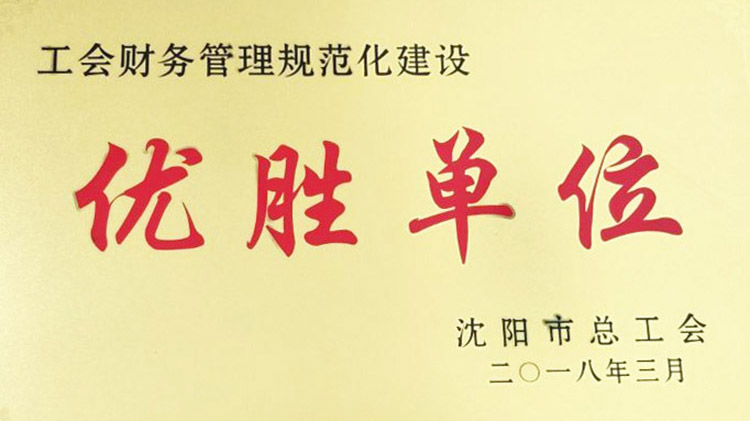 工会财务管理规范化建设
优胜单位
沈阳市总工会
二〇一八年三月